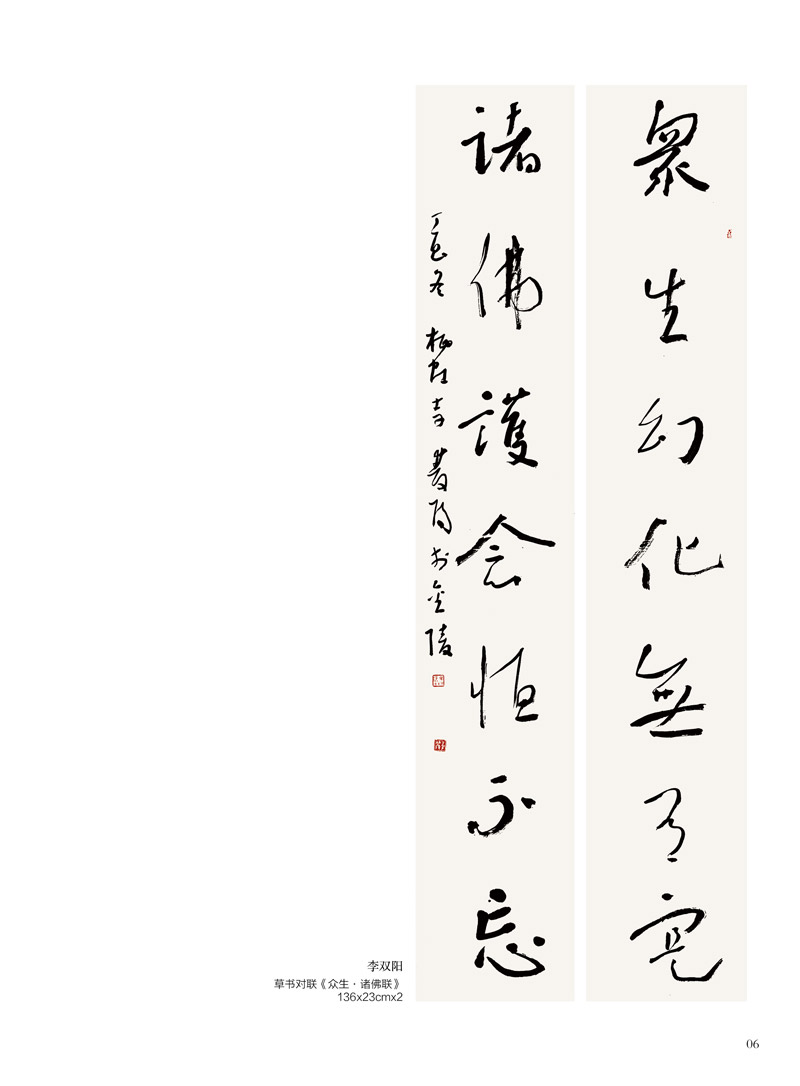 眾生幻化無
諸佛護念恒不忘
丁酉冬 栖霞寺 雙陽於金陵
李双阳
草书对联《众生·诸佛联》
136x23cmx2
06